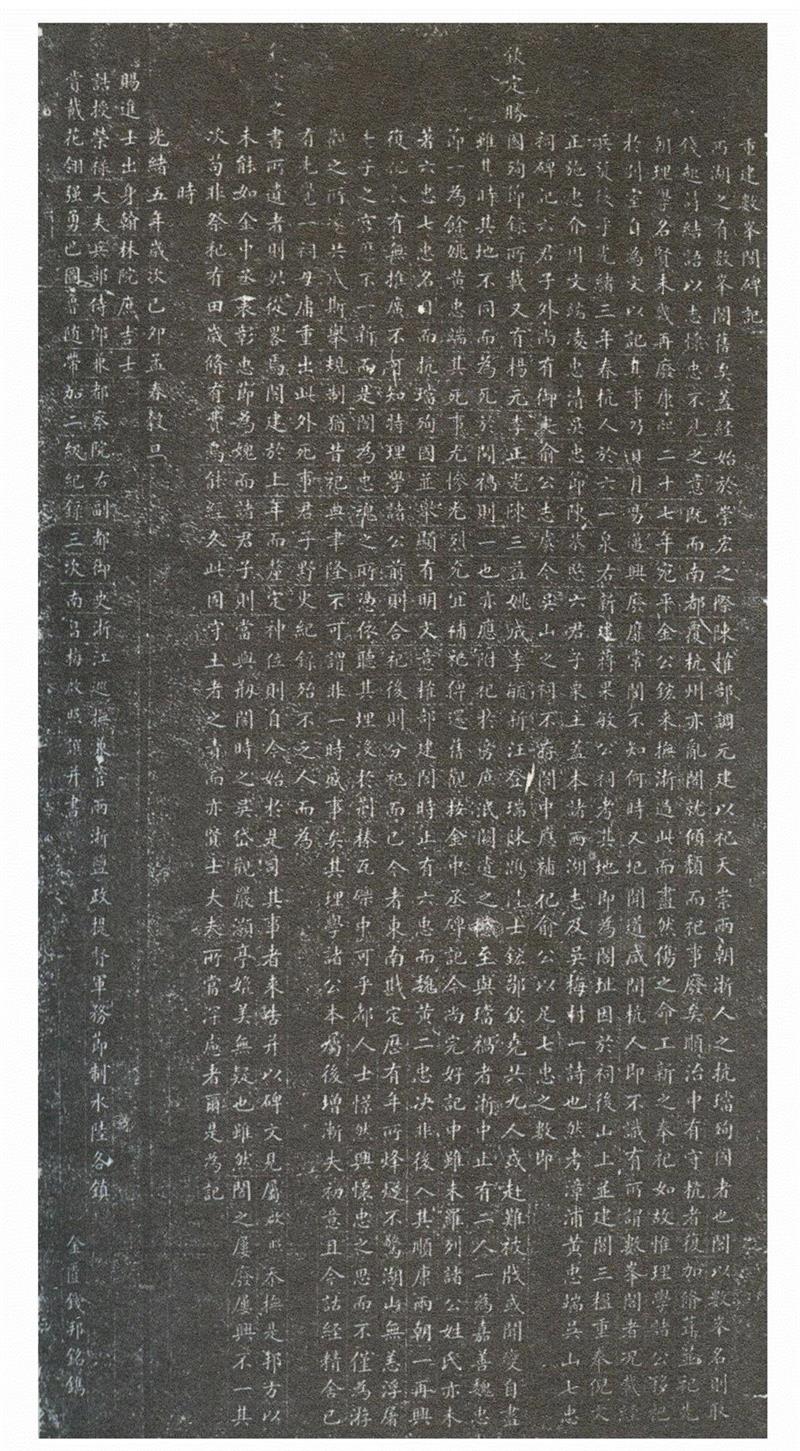 重建數峯閣碑記
西湖之有數峯閣舊矣蓋經始於崇宏之際陳權部調元建以祀天崇兩朝浙人之抗璫殉國者也閣以數峯名則取
錢起詩結語以志懷忠不見之意既而南都覆杭州亦亂閣就傾頹而祀事廢矣順治中有守杭者復加脩葺並祀先
朝理學名賢未幾再廢康熙二十七年宛平金公鋐來撫浙過此而盡然傷之命工新之奉祀如故惟理學諸公移祀
於別室自為文以記其事乃日月易邁興廢靡常閣不知何時又圮聞道咸間杭人即不識有所謂數峯閣者況載經
兵燹後乎光緒三年春杭人於六一泉右新建蔣果敏公祠考其地即為閣址因於祠後山上並建閣三楹重奉倪文
正施忠介周文忠凌忠清吳忠節陳恭愍六君子栗主蓋本諸西湖志及吳梅村一詩也然考漳浦黃忠端吳山七忠
祠碑記六君子外尚有御史俞公志虞今吳山之祠不存閣中應補祀俞公以足七忠之數即
欽定勝國殉節錄所載又有楊元李正光陳三益姚成李毓新汪登瑞陳鴻 士鋐鄒欽堯共九人或赴難被戕或聞變自盡
雖其時其地不同而為死於闖禍則一也亦應附祀於傍庶泯闕遺之憾至與璫禍者浙中止有二人一為嘉善魏忠
節一為餘姚黃忠端其死事尤慘尤烈允宜補祀俾還舊觀按金中丞碑記今尚完好記中雖未羅列諸公姓氏亦未
著六忠七忠名目而抗璫殉國並舉顯有明文意權部建閣時止有六忠而魏黃二忠決非後入其順康兩朝一再興
復祀 有無推廣不 知特理學諸公前則合祀後則分祀而已今者東南戡定歷有年所烽燧不驚湖山無恙浮屠
老子之宮 不一新而是閣為忠魂之所憑依聽其埋沒於荊榛瓦礫中可乎都人士憬然興懷忠之思而不僅為游
觀之所 共成斯舉規制猶昔祀典聿隆不可謂非一時盛事矣其理學諸公本屬後增漸失初意且今詁經精舍已
有先覺一祠毋庸重出此外死事君子野史紀錄殆不乏人而為
 定之書所遺者則 從畧焉閣建於上年而釐定神位則自今始於是司其事者來告并以碑文見屬啟照忝撫是邦方以
未能如金中丞表彰忠節為媿而諸君子則當與剏閣時之吳岱觀嚴灝亭媲美無疑也雖然閣之屢廢屢興不一其
次茍非祭祀有田歲脩有費烏能經久此固守土者之責而亦賢士大夫所當深慮者爾是為記
時
光緒五年歲次己卯孟春穀旦
賜進士出身翰林院庶吉士
誥授榮祿大夫兵部侍郎兼都察院右副都御史浙江巡撫兼管兩浙鹽政提督軍務節制水陸各鎮
賞戴花翎强勇巴圖魯隨帶加二級紀錄三次南昌梅啟照譔并書
金匱錢邦銘鐫